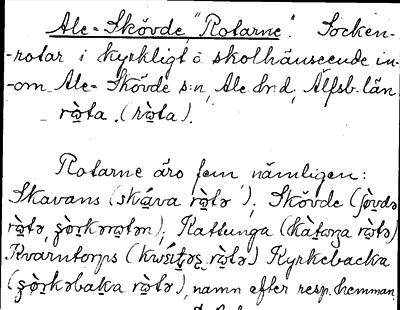 Ale-Skövde, "Rotarne". Socken-
-rotar i kyrkligt o skolhänseende in-
-om Ale-Skövde s:n, Ale hrd, Älfsb. län
rὼta. (rὼta).
Rotarne äro fem, nämligen:
Skavans (skáva rὼtə); Skövde (ʃø̀vdə
rὼtə, ); Kattunga (kàtoŋa rὼtə)
Kvarntorps ( rὼtə) Kyrkebacka
( rὼtə), namn efter resp. hemman.